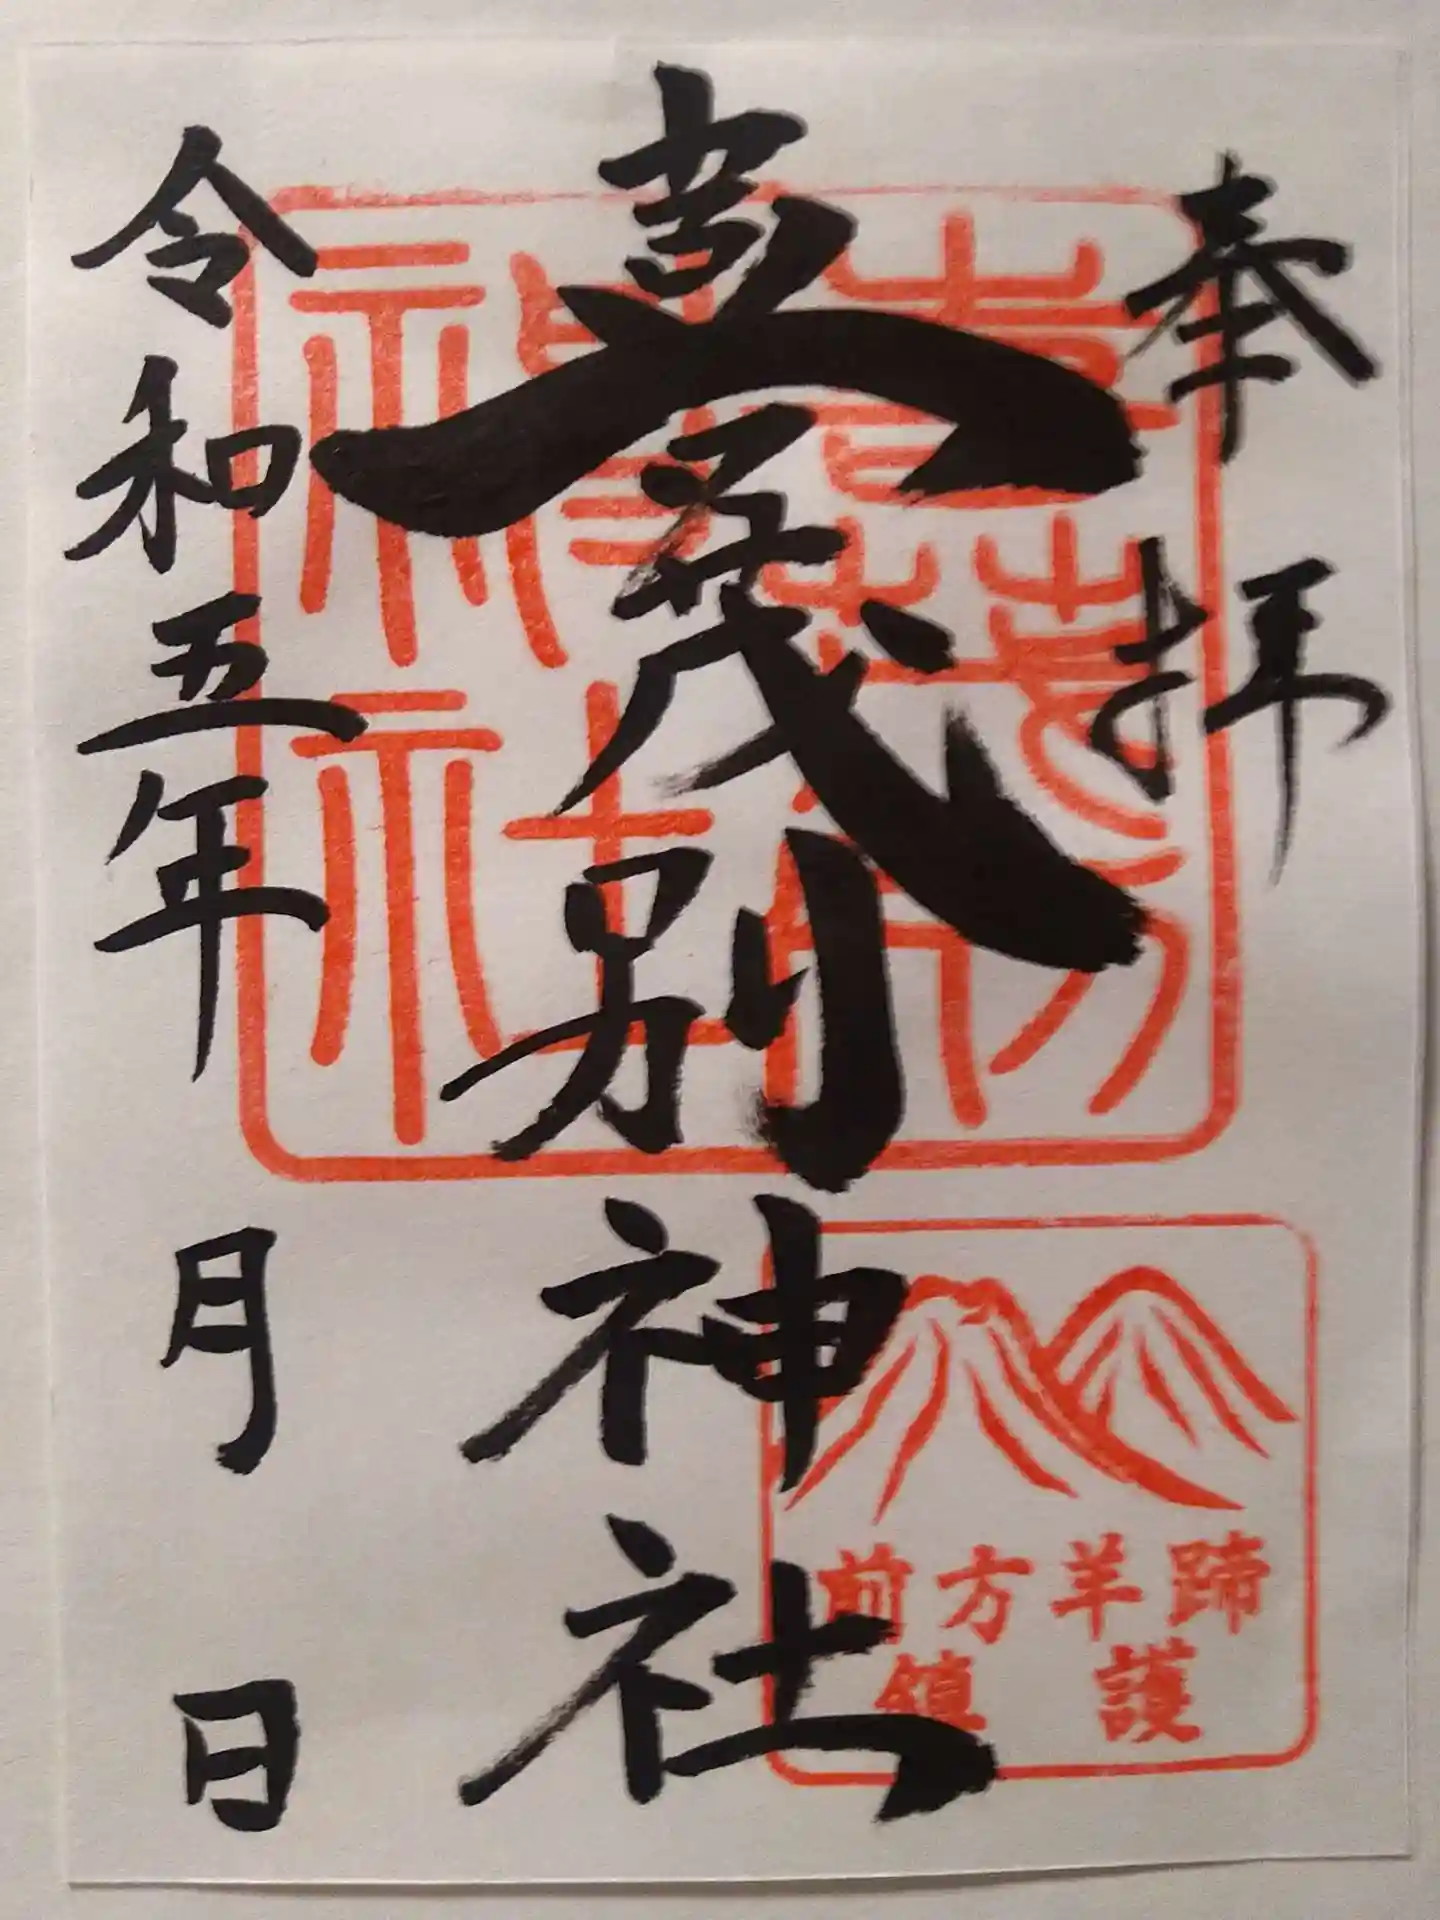 奉拝
喜茂別神社
令和五年 月 日
喜茂別
神社
前方羊蹄
鎮護